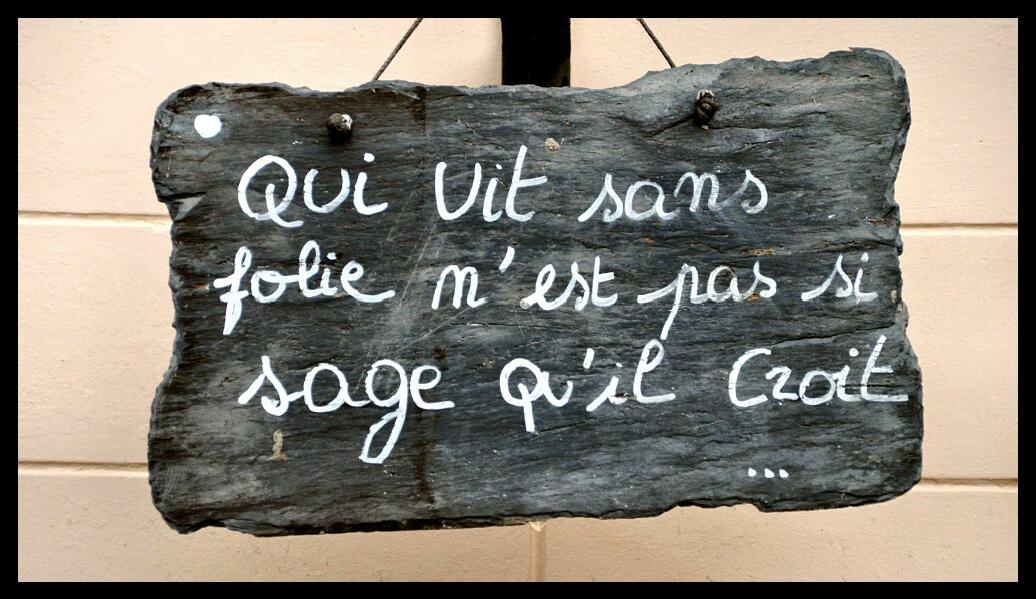 Qui Vit sans
folie n'est pas si
sage Qu'il Croit
...